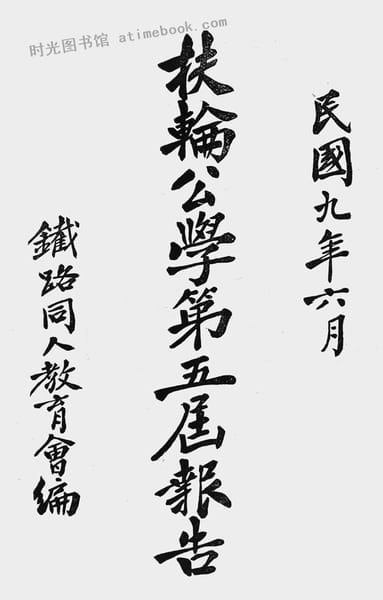 时光图书馆 atimebook.com
民國九年六月
扶輪公學第五届報告
鐵路同人教育會編